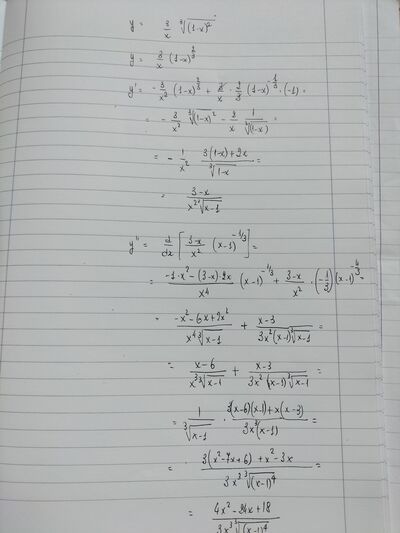 y = 3/x ∛(1-x)²
y = 3/x (1-x)^(2/3)
y' = -3/x² (1-x)^(2/3) + 3/x · 2/3 (1-x)^(-1/3) · (-1) =
= -3/x² ∛(1-x)² - 2/x 1/∛(1-x) =
= -1/x² (3(1-x)+2x)/∛(1-x) =
= (3-x)/(x² ∛(x-1))
y'' = d/dx [(3-x)/x² (x-1)^(-1/3)] =
= (-1·x² - (3-x)·2x)/x⁴ (x-1)^(-1/3) + (3-x)/x² · (-1/3)(x-1)^(-4/3) =
= (-x² - 6x + 2x²)/(x⁴ ∛(x-1)) + (x-3)/(3x²(x-1)∛(x-1)) =
= (x-6)/(x³ ∛(x-1)) + (x-3)/(3x²(x-1)∛(x-1)) =
= 1/∛(x-1) · (3(x-6)(x-1)+x(x-3))/(3x³(x-1)) =
= (3(x²-7x+6)+x²-3x)/(3x³ ∛(x-1)⁴) =
= (4x²-24x+18)/(3x³ ∛(x-1)⁴)